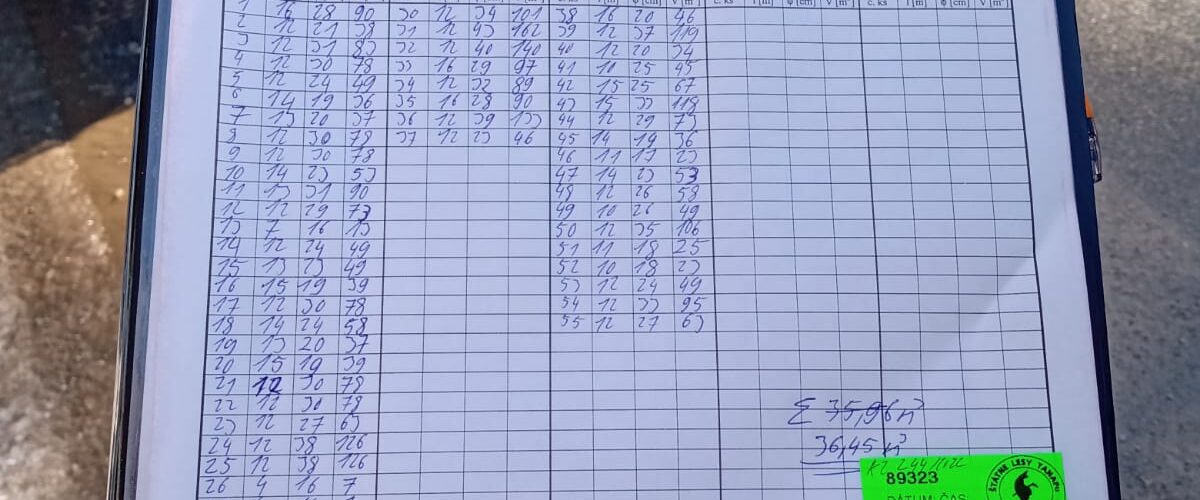 č. ks l [m] φ [cm] V [m³] č. ks l [m] φ [cm] V [m³]
1 16 28 90 30 12 34 101 38 16 20 46
2 12 21 38 31 12 43 162 39 12 37 119
3 12 31 83 32 12 40 140 40 12 20 34
4 12 30 78 33 16 29 97 41 10 25 45
5 12 24 49 34 12 32 89 42 15 25 67
6 14 19 36 35 16 28 90 43 15 33 118
7 13 20 37 36 12 39 133 44 12 29 73
8 12 30 78 37 12 23 46 45 14 19 36
9 12 30 78 46 11 17 23
10 14 23 53 47 14 23 53
11 13 31 90 48 12 26 58
12 12 29 73 49 10 26 49
13 7 16 13 50 12 35 106
14 12 24 49 51 11 18 25
15 13 23 49 52 10 18 23
16 15 19 39 53 12 24 49
17 12 30 78 54 12 33 95
18 14 24 58 55 12 27 63
19 13 20 37
20 15 19 39
21 12 30 78
22 12 30 78
23 12 27 63
24 12 38 126
25 12 38 126
26 4 16 7
Σ 35,96 m³
36,45 m³
89323
DÁTUM, ČAS
ŠTÁTNE LESY TANAPU